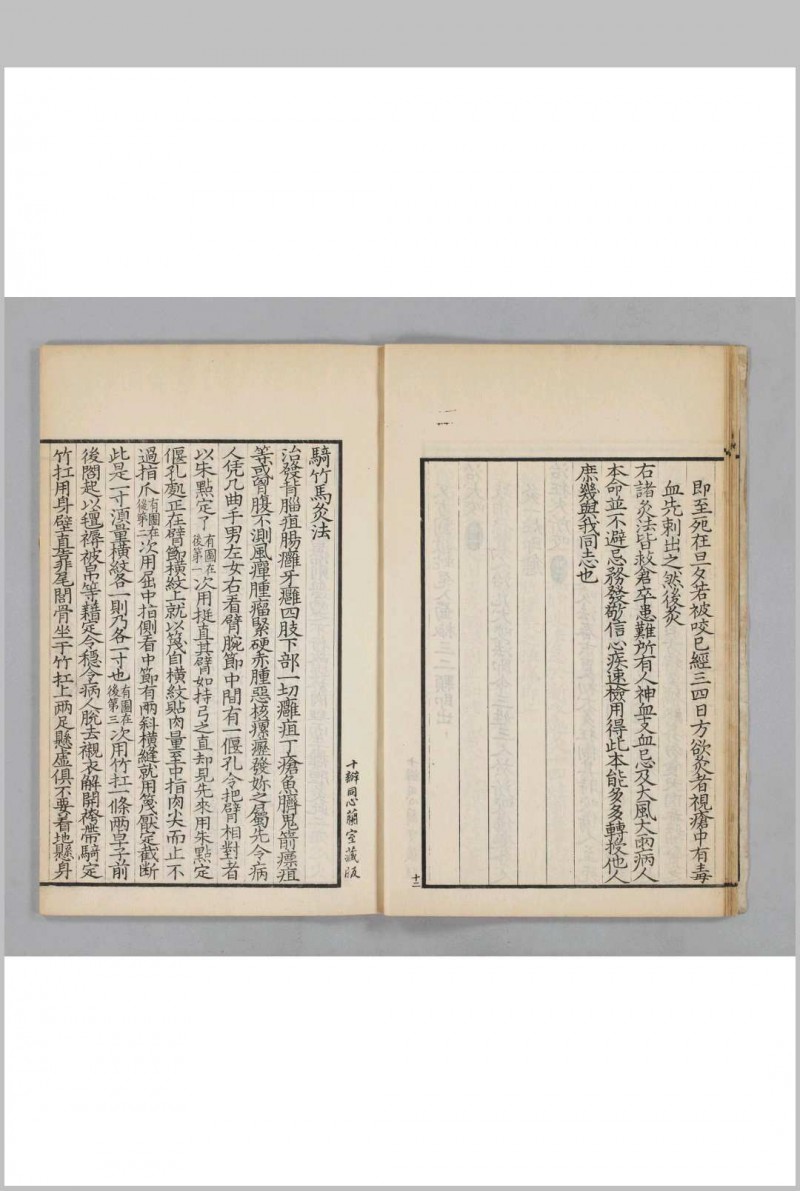 即至死在旦夕若被咬已經三四日方欲灸者視瘡中有毒
血先刺出之然後灸
右諸灸法皆救倉卒患難所有人神血支血忌及大風大雨病人
本命並不避忌務發敬信心疾速檢用得此本能多多轉授他人
庶幾與我同志也
十二
十瓣同心蘭室藏版
騎竹馬灸法
治發背腦疽腸癰牙癰四肢下部一切癰疽丁瘡魚臍鬼箭瘭疽
等或胷腹不測風癉腫瘤緊硬赤腫惡核瘰癧發奶之屬先令病
人凭几曲手男左女右看臂腕節中間有一偃孔令把臂相對者
以朱點定了有圖在後第一次用挺直其臂如持弓之直却見先來用朱點定
偃孔處正在臂節橫紋上就以篾自橫紋貼肉量至中指肉尖而止不
過指爪有圖在後第二次用屈中指側看中節有兩斜橫縫就用篾壓定截斷
此是一寸須量橫紋各一則乃各一寸也有圖在後第三次用竹扛一條兩旱子前
後閣起以氊褥被帛等藉定令穩令病人脫去襯衣解開袴帶騎定
竹扛用身壁直靠尾閭骨坐于竹扛上兩足懸虛俱不要着地懸身